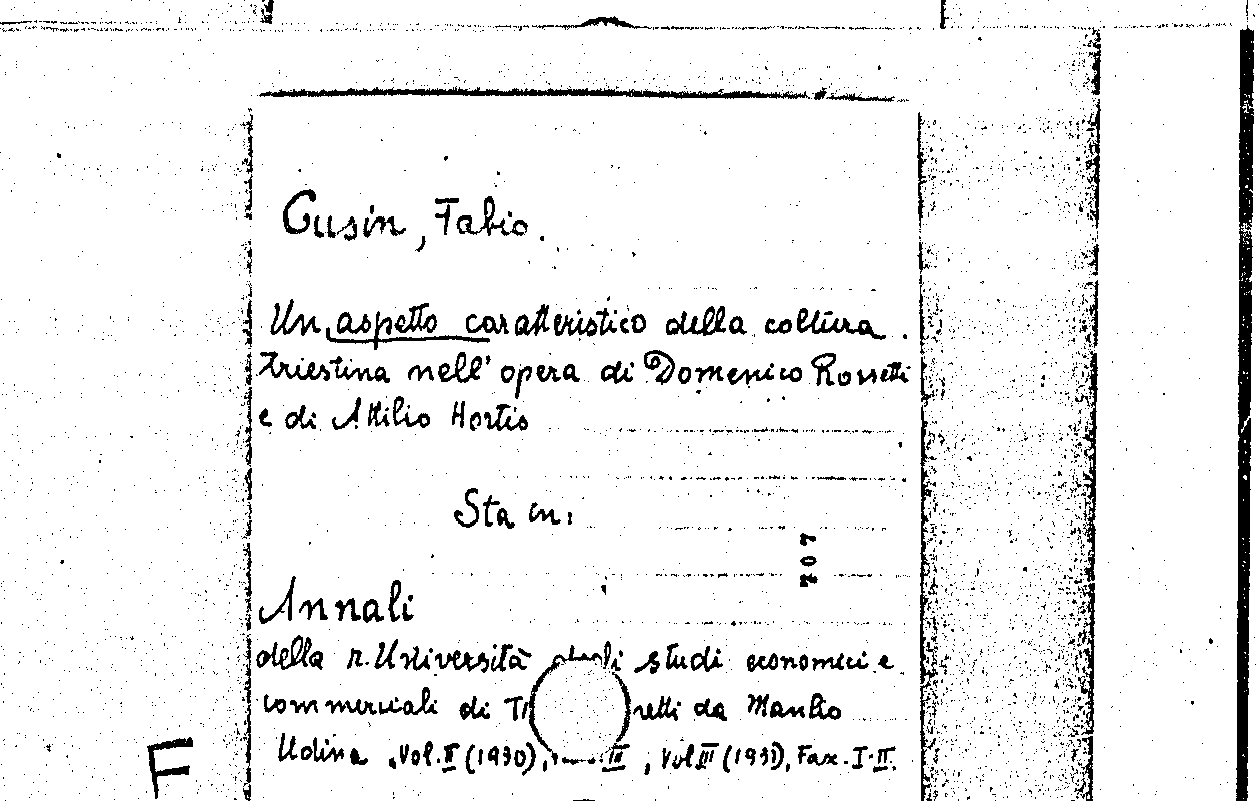 Cusin, Fabio.
Un aspetto caratteristico della coltura
triestina nell'opera di Domenico Rossetti
e di Attilio Hortis
Sta in:
707
Annali
della r. Università degli studi economici e
commerciali di retti da Manlio
Udina, Vol. II (1930), III, Vol III (1931), Fax. I-II.
F